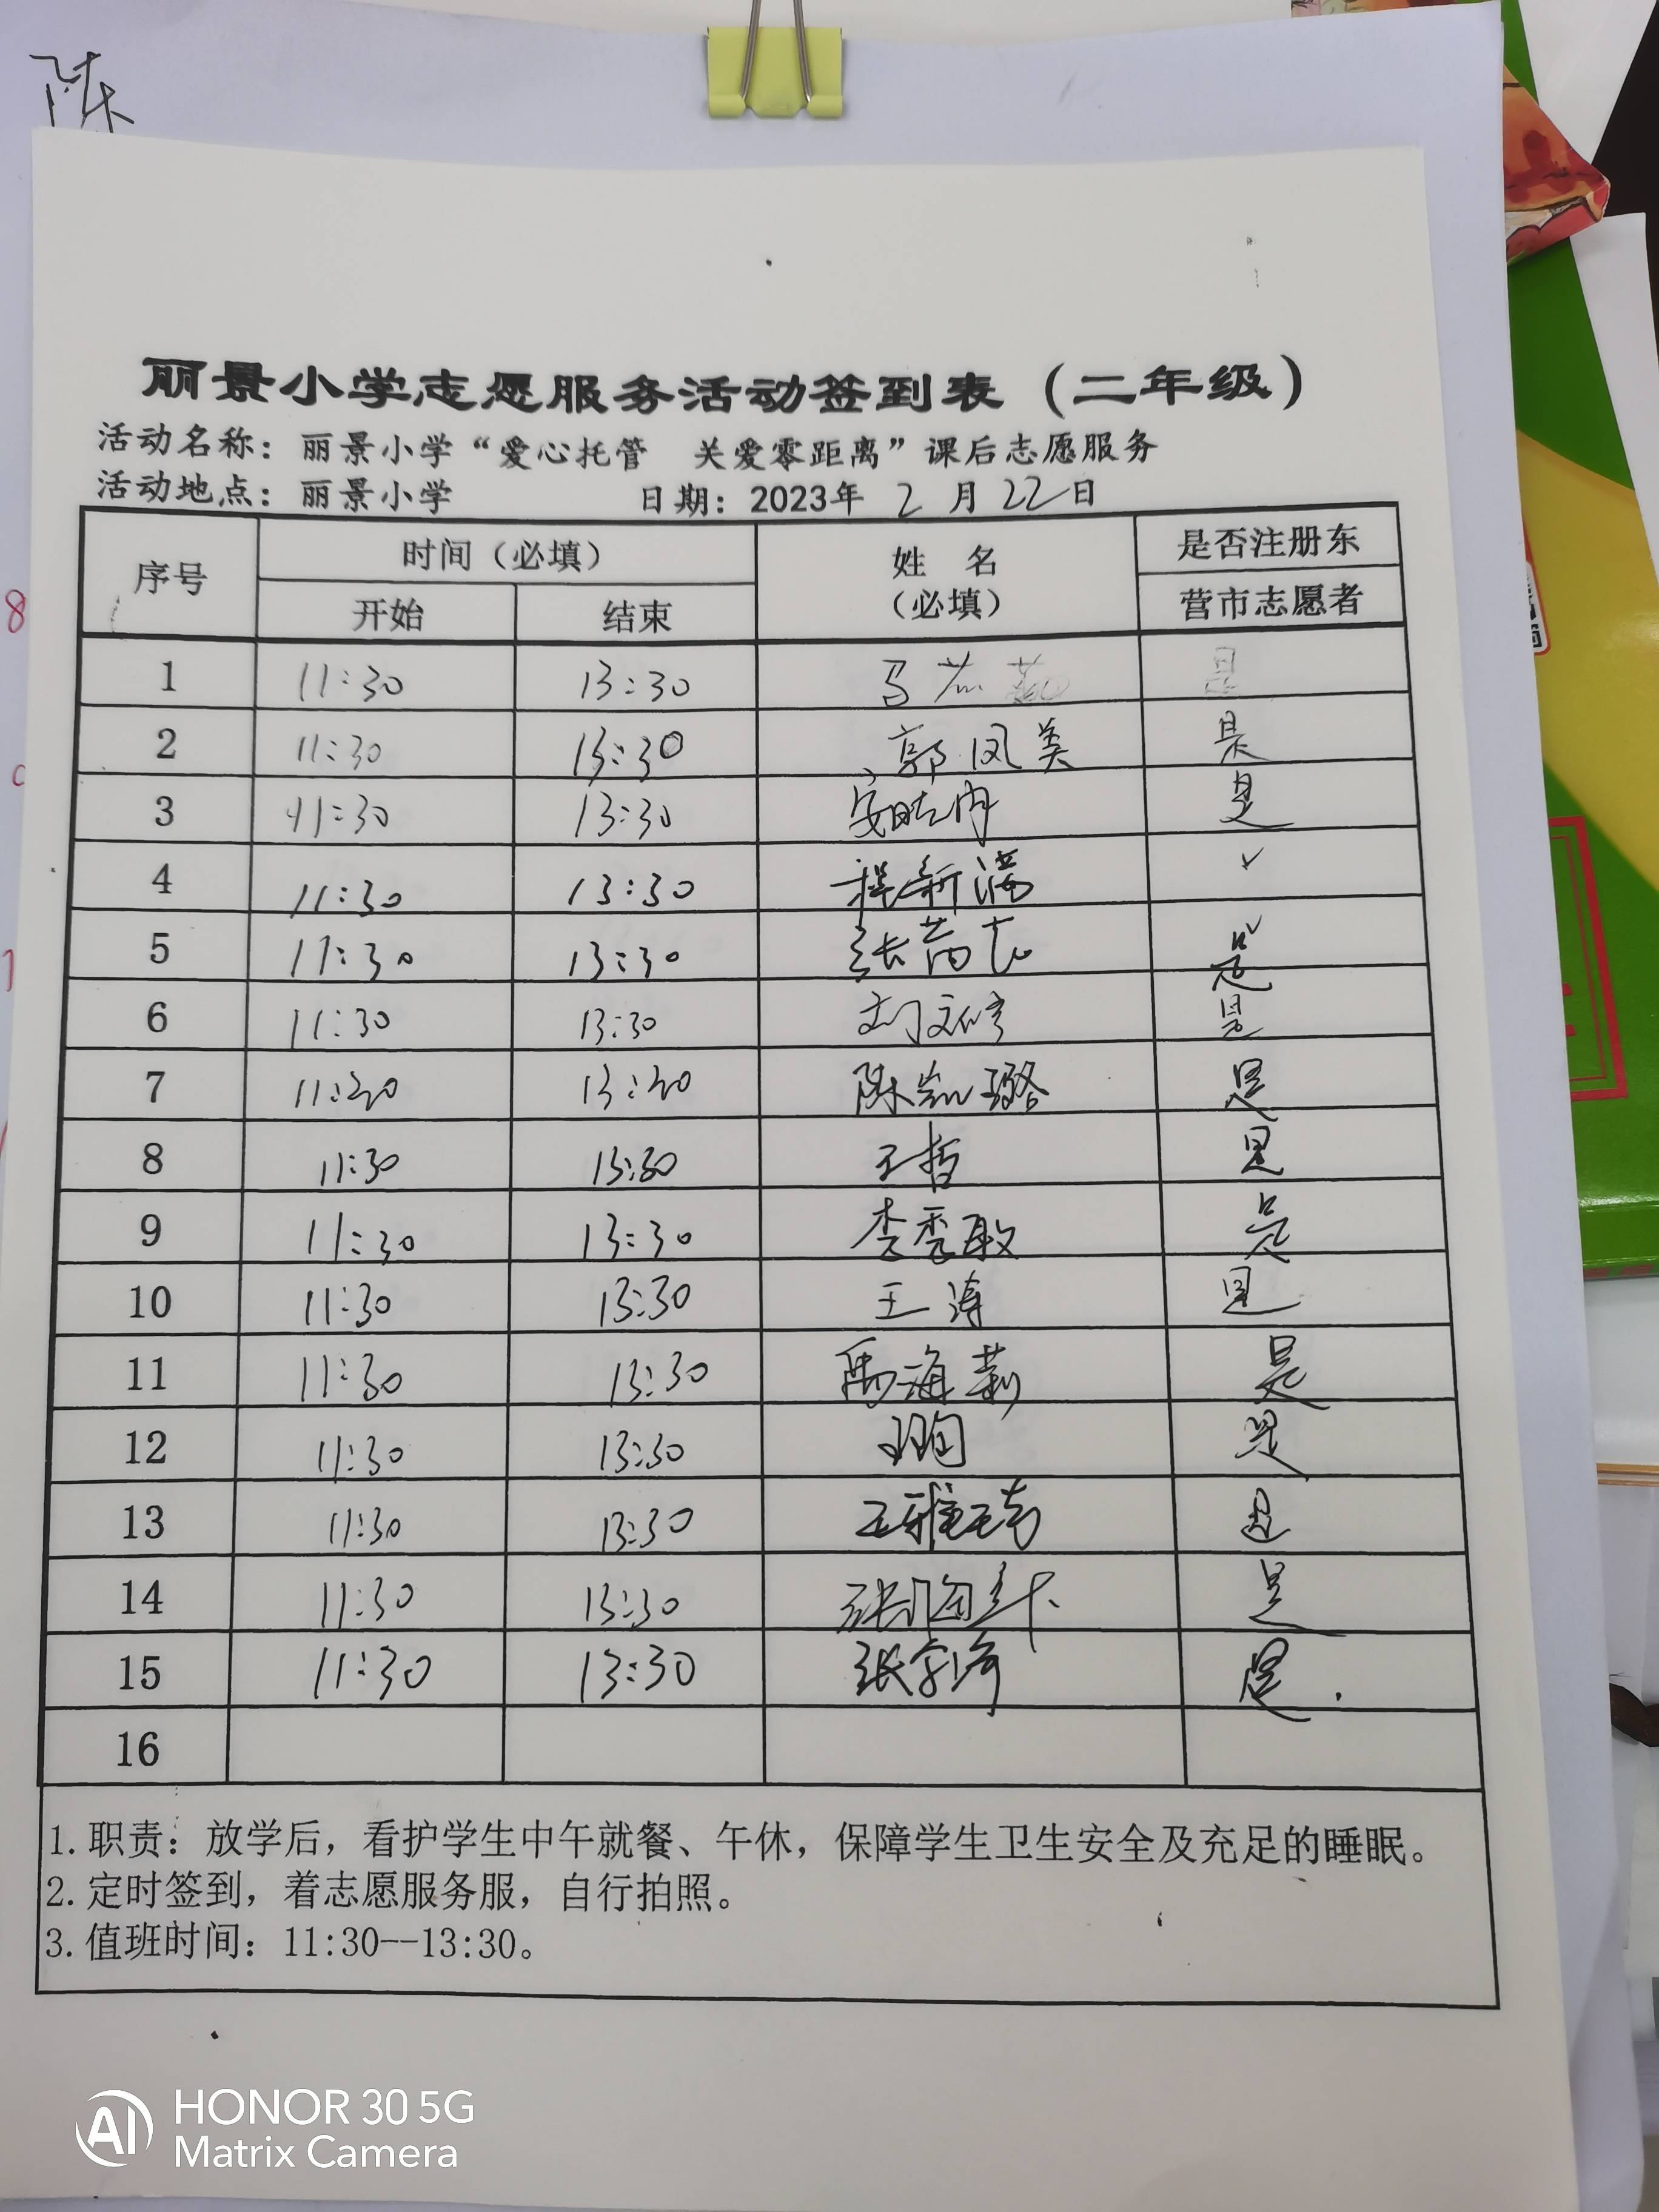 陈
丽景小学志愿服务活动签到表（二年级）
活动名称：丽景小学“爱心托管 关爱零距离”课后志愿服务
活动地点：丽景小学 日期：2023年 2 月 22 日
序号 时间（必填） 姓 名（必填） 是否注册东营市志愿者
开始 结束
1 11:30 13:30 马 是
2 11:30 13:30 郭凤美 是
3 11:30 13:30 是
4 11:30 13:30 程新满 ✓
5 11:30 13:30 张 ✓ 是
6 11:30 13:30 刘文修 是
7 11:30 13:30 陈凯璐 是
8 11:30 13:30 王哲 是
9 11:30 13:30 李秀敏 是
10 11:30 13:30 王涛 是
11 11:30 13:30 禹海莉 是
12 11:30 13:30 是
13 11:30 13:30 王雅琦 是
14 11:30 13:30 张 是
15 11:30 13:30 张 是.
16
1.职责：放学后，看护学生中午就餐、午休，保障学生卫生安全及充足的睡眠。
2.定时签到，着志愿服务服，自行拍照。
3.值班时间：11:30--13:30。
AI HONOR 30 5G
Matrix Camera